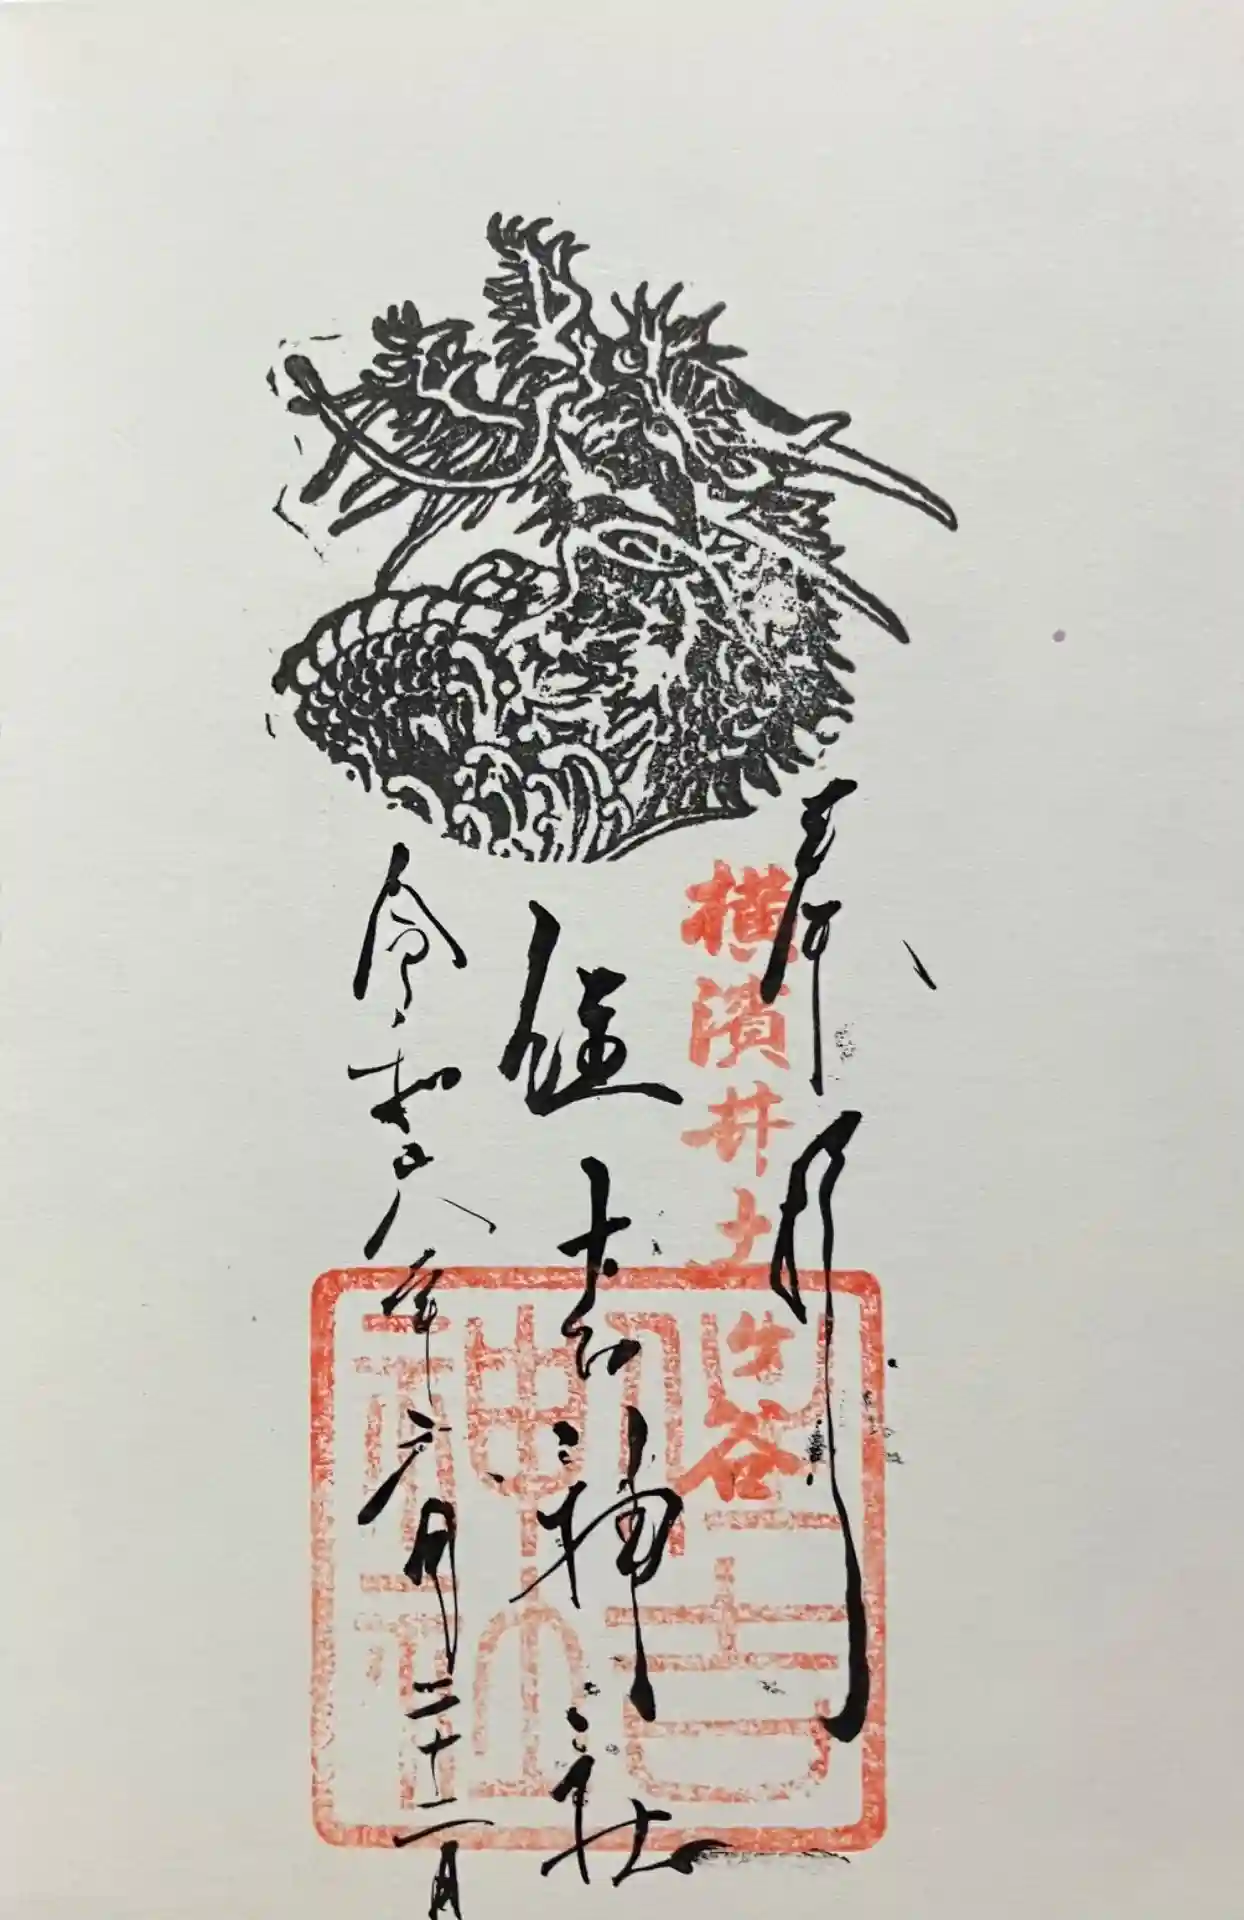 奉拝
横濱井土ヶ谷
住吉神社
令和八年六月二十二日
住吉
神社